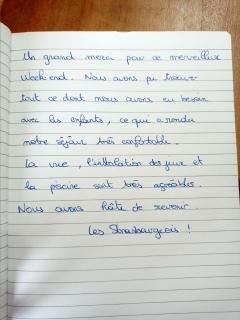 Un grand merci pour ce merveilleux
week-end. Nous avons pu trouver
tout ce dont nous avons eu besoin
avec les enfants, ce qui a rendu
notre séjour très confortable.
La vue, l'installation des jeux et
la piscine sont très agréables.
Nous avons hâte de revenir.
Les Strasbourgeois !